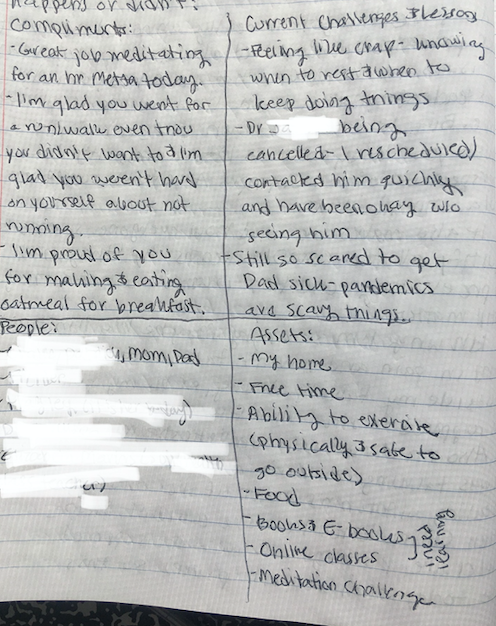 happens or didn't?
Compliments:
- Great job meditating
for an hr metta today.
- I'm glad you went for
a run/walk even thou
you didn't want to & I'm
glad you weren't hard
on yourself about not
running.
- I'm proud of you
for making & eating
oatmeal for breakfast.
People:
, mom, Dad
Current Challenges & lessons
- Feeling like crap - knowing
when to rest & when to
keep doing things
- Dr being
cancelled - (rescheduled)
contacted him quickly
and have been okay w/o
seeing him
- Still so scared to get
Dad sick - pandemics
are scary things.
Assets:
- My home
- Free time
- Ability to exercise
(physically & safe to
go outside)
- Food
- Books & E-books
- Online classes
- Meditation Challenge